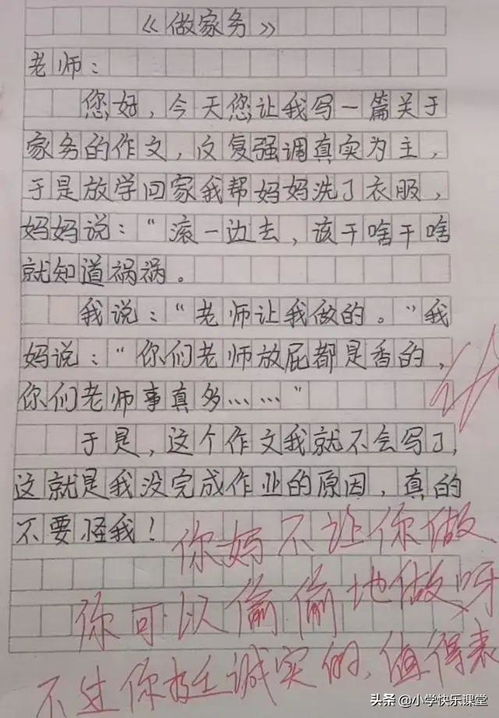 《做家务》
老师：
您好，今天您让我写一篇关于
家务的作文，反复强调真实为主，
于是放学回家我帮妈妈洗了衣服，
妈妈说：“滚一边去，该干啥干啥
就知道祸祸。
我说：“老师让我做的。”我
妈说：“你们老师放屁都是香的，
你们老师事真多……”
于是，这个作文我就不会写了，
这就是我没完成作业的原因，真的
不要怪我！
你妈不让你做
你可以偷偷地做呀
不过你挺诚实的，值得表
头条 @小学快乐课堂